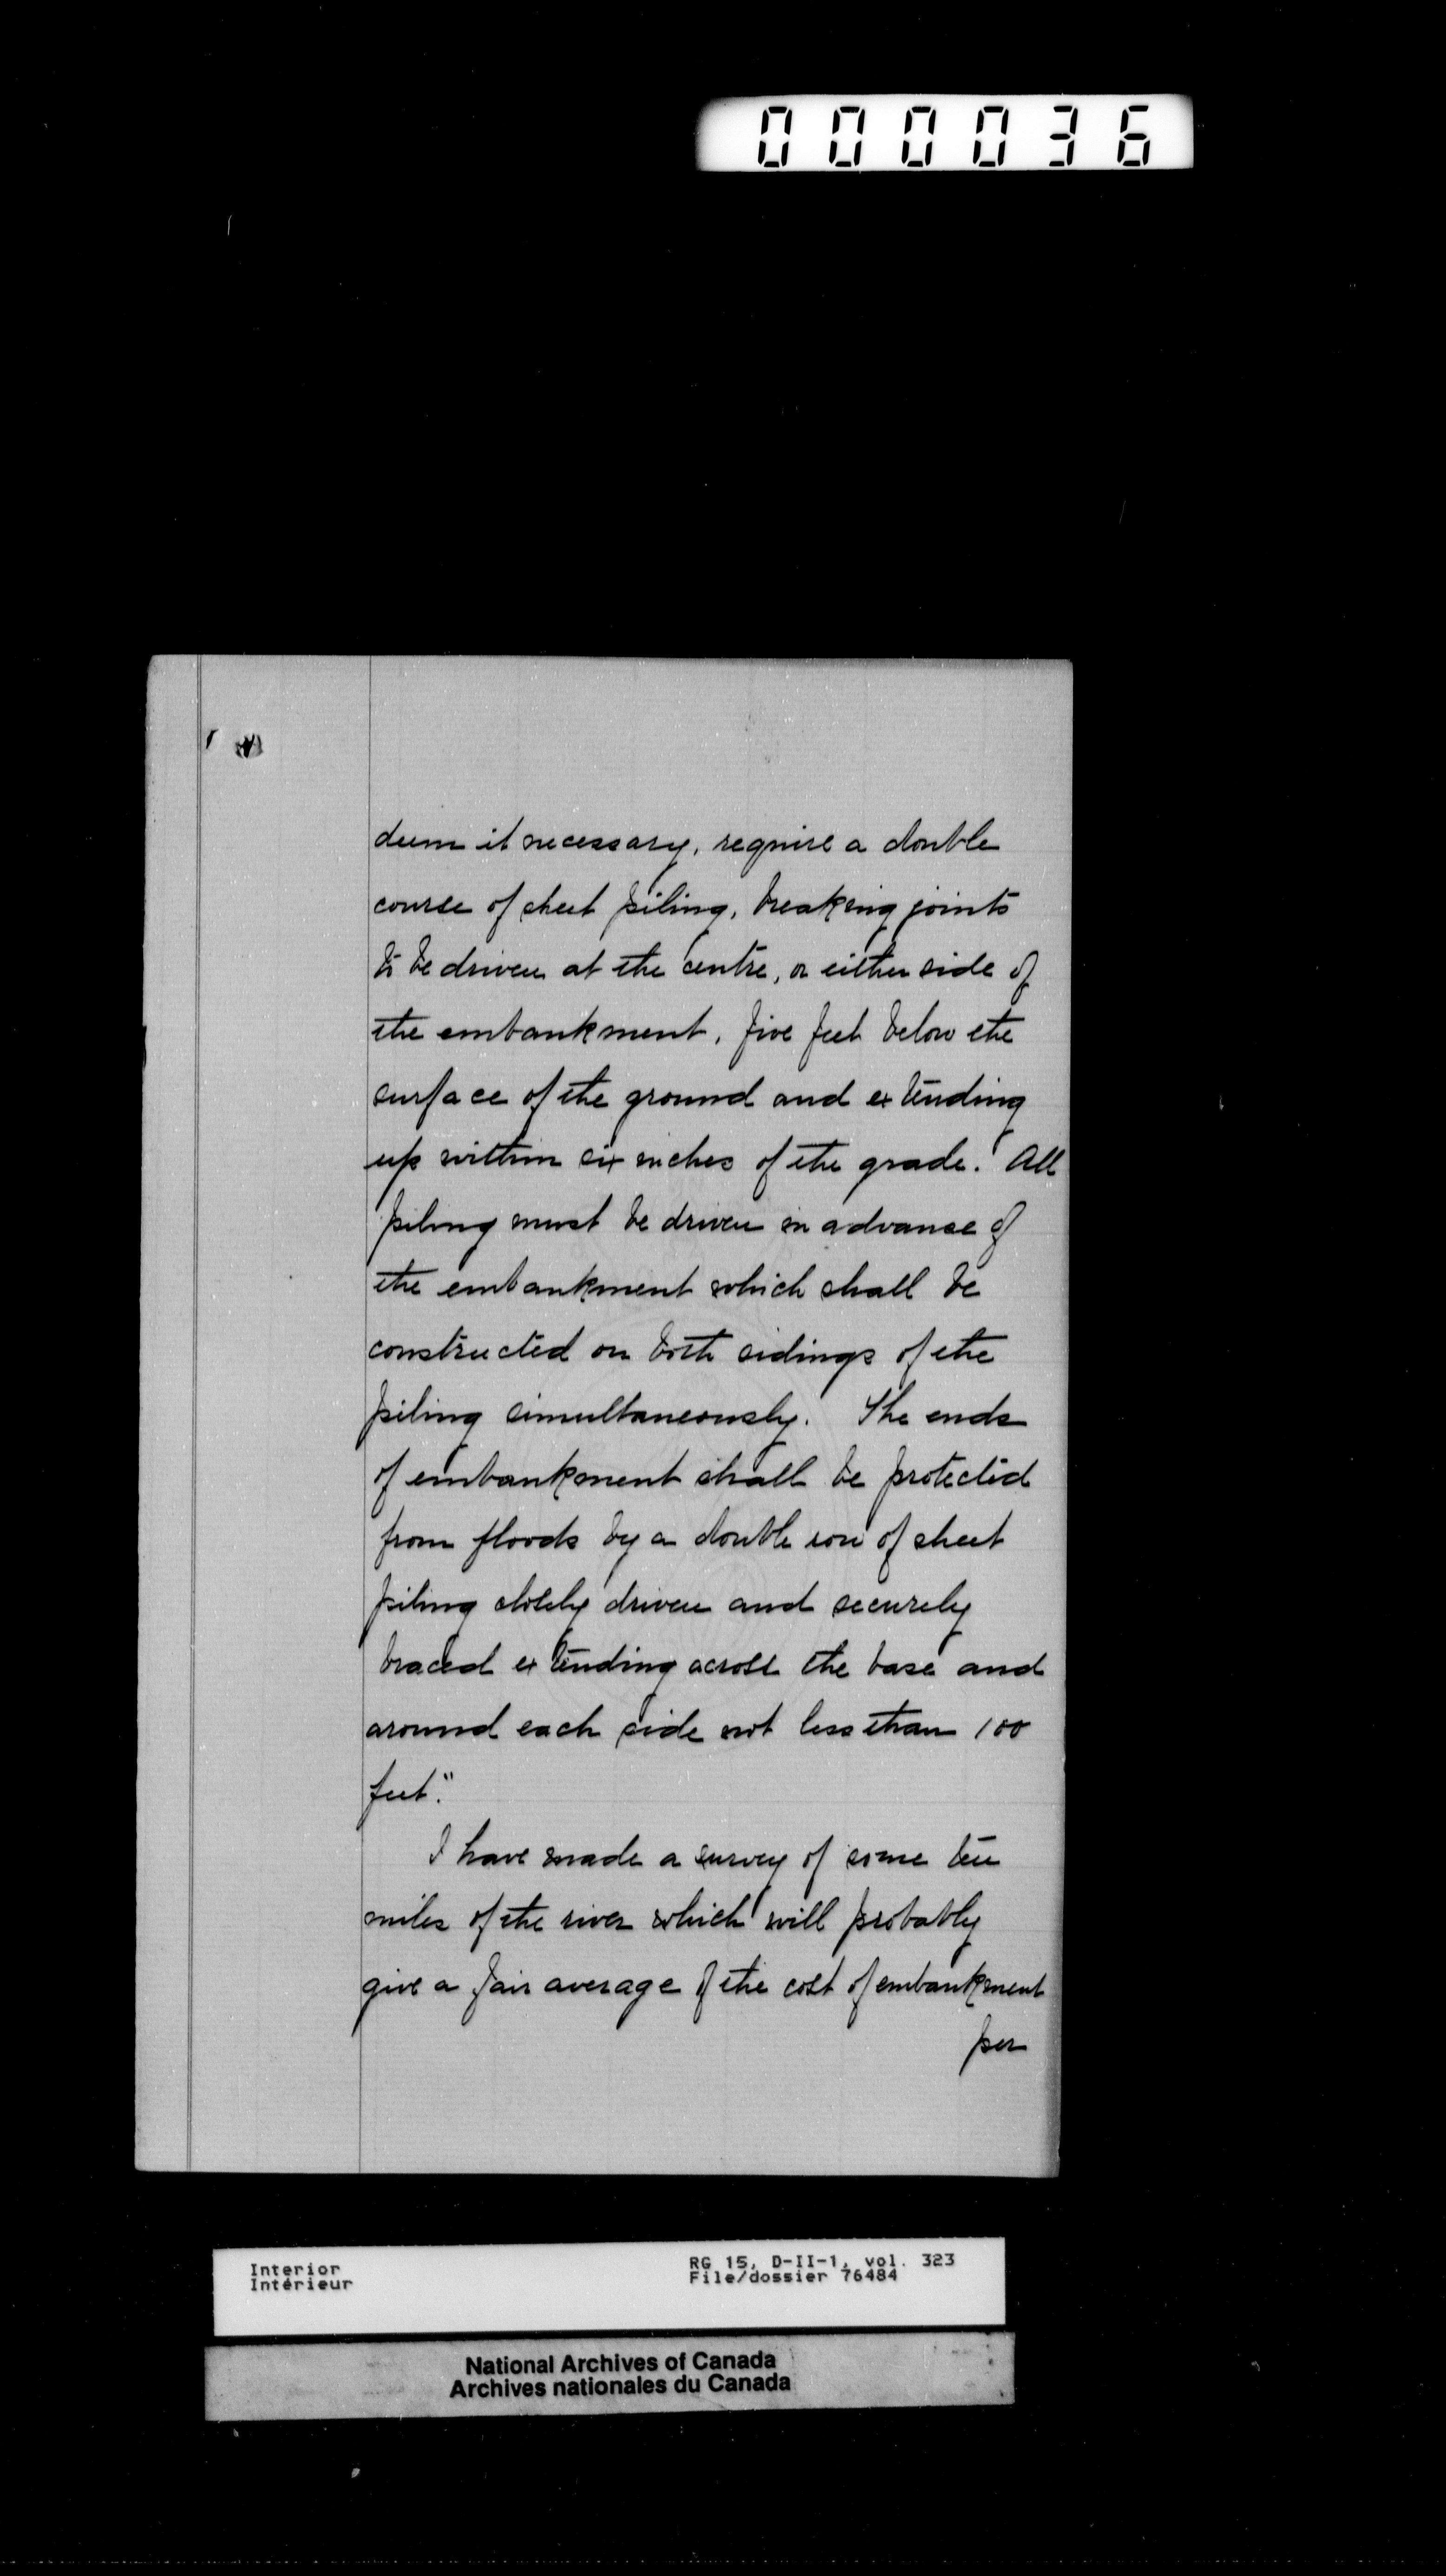 000036
deem it necessary, require a double
course of sheet piling, breaking joints
to be driven at the centre, or either side of
the embankment, five feet below the
surface of the ground and extending
up within six inches of the grade. All
piling must be driven in advance of
the embankment which shall be
constructed on both sidings of the
piling simultaneously. The ends
of embankment shall be protected
from floods by a double row of sheet
piling closely driven and securely
braced extending across the base and
around each side not less than 100
feet."
I have made a survey of some ten
miles of the river which will probably
give a fair average of the cost of embankment
per
Interior
Intérieur
RG 15, D-II-1, vol. 323
File/dossier 76484
National Archives of Canada
Archives nationales du Canada